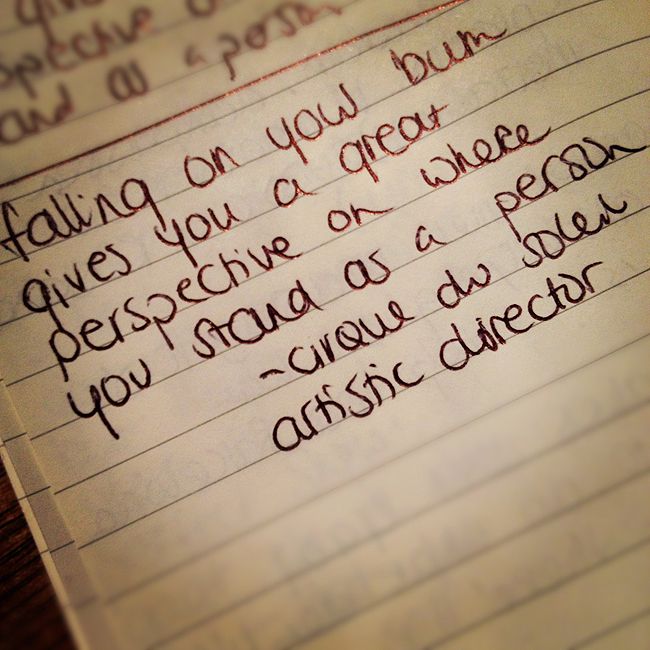 spective o
and as a person
falling on your bum
gives you a great
perspective on where
you stand as a person
-cirque du soleil
artistic director